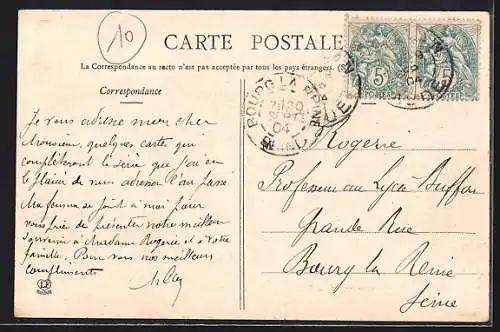 10
CARTE POSTALE
La Correspondance au recto n'est pas acceptée par tous les pays étrangers. (S
Correspondance
Je vous adresse mon cher
Monsieur, quelques cartes qui
complèteront la série que j'ai eu
le plaisir de vous adresser l'an passé.
Ma femme se joint à moi pour
vous prier de présenter notre meilleur
souvenir à Madame Rogerie et à votre
famille. Pour vous nos meilleurs
compliments
BOURG-LA-REINE
7h20
SEPT
04
SEINE
5
POSTES
5
Rogerie
Professeur au Lycée Buffon
Grande Rue
Bourg la Reine
Seine